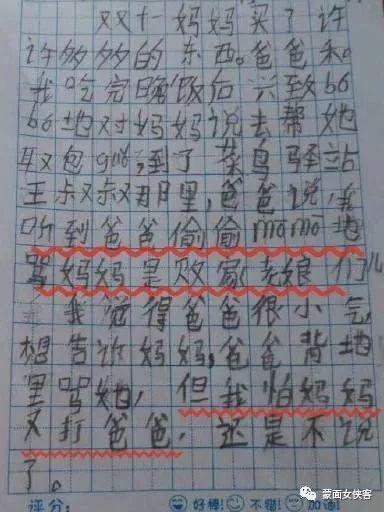 双十一妈妈买了许
许多多的东西。爸爸和
我吃完晚饭后兴致bó
bó地对妈妈说去帮她
取包guǒ,到了菜鸟驿站
王叔叔那里,爸爸说,我
听到爸爸偷偷mōmō地
骂妈妈是败家老娘们儿
我觉得爸爸很小气,
想告诉妈妈,爸爸背地
里骂她,但我怕妈妈
又打爸爸,还是不说
了。
评分: 好棒! 不错! 加油!
蒙面女侠客